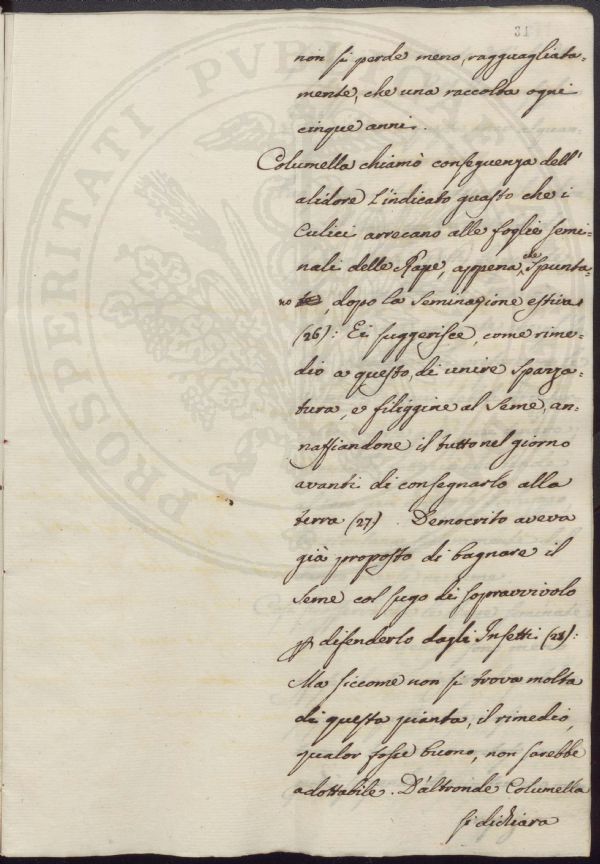 31
non si perde meno, ragguagliata-
mente, che una raccolta ogni
cinque anni.
Columella chiamò conseguenza dell'
alidore l'indicato guasto che i
Culici arrecano alle foglie semi-
nali delle Rape, appena che spunta-
no, dopo la seminagione estiva
(26): Ei suggerisce, come rime-
dio a questo, di unire spazza-
tura, o filiggine al seme, an-
naffiandone il tutto nel giorno
avanti di consegnarlo alla
terra (27). Democrito aveva
già proposto di bagnare il
seme col sugo di sopravvivolo
p difenderlo dagli Insetti (28):
Ma siccome non si trova molta
di questa pianta, il rimedio,
qualor fosse buono, non sarebbe
adottabile. D'altronde Columella
si dichiara
PROSPERITATI PVBLICAE